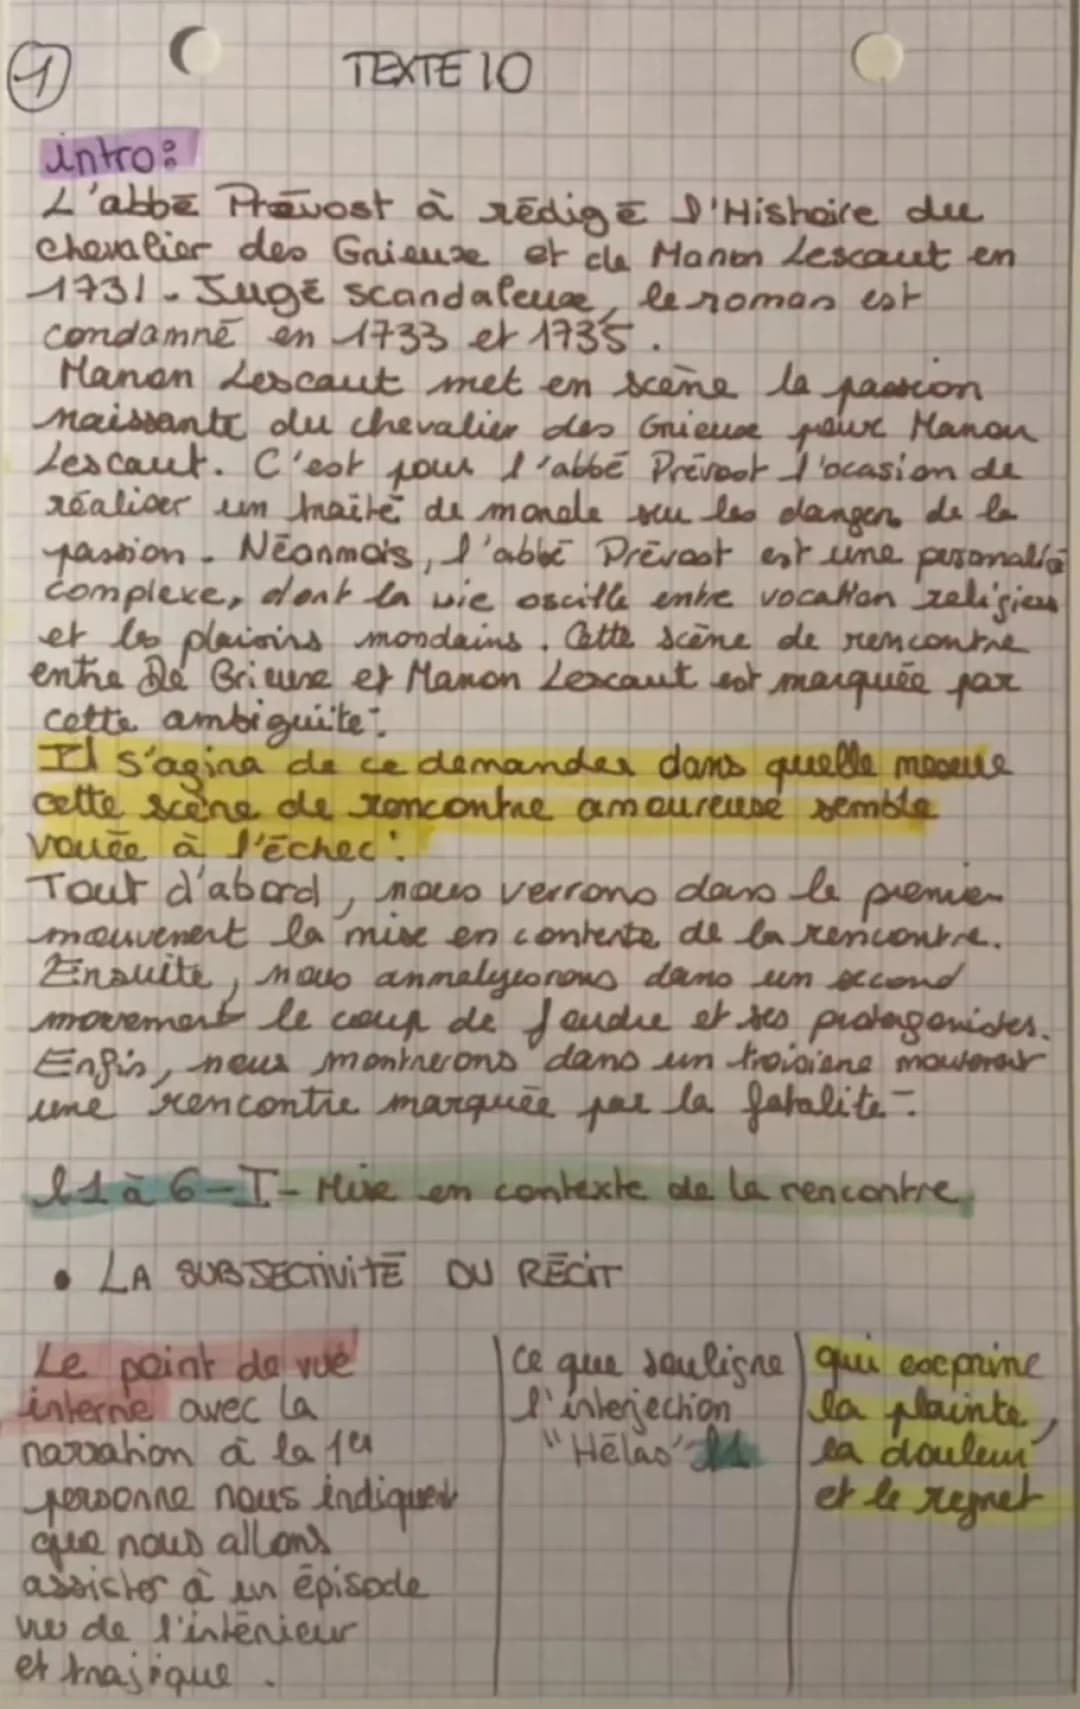 1
TEXTE 10
intro:
L'abbé Prévost à rédigé l'Histoire du
chevalier des Grieux et de Manon Lescaut en
1731. Jugé scandaleux, le roman est
condamné en 1733 et 1735.
Manon Lescaut met en scène la passion
naissante du chevalier des Grieux pour Manon
Lescaut. C'est pour l'abbé Prévost l'ocasion de
réaliser un traité de morale sur les dangers de la
passion. Néanmois, l'abbé Prévost est une personalité
complexe, dont la vie oscille entre vocation religieus
et les plaisirs mondains. Cette scène de rencontre
entre De Grieux et Manon Lescaut est marquée par
cette ambiguité.
Il s'agira de ce demander dans quelle mesure
cette scène de rencontre amoureuse semble
vouée à l'échec.
Tout d'abord, nous verrons dans le premier
mouvement la mise en contexte de la rencontre.
Ensuite, nous annalyserons dans un second
movement le coup de foudre et ses protagonistes.
Enfin, nous montrerons dans un troisième mouvement
une rencontre marquée par la fatalité.
l1 à 6 - I - Mise en contexte de la rencontre
• LA SUBJECTIVITÉ DU RÉCIT
Le point de vue
interne avec la
narration à la 1er
personne nous indiquent
que nous allons
assister à un épisode
vu de l'intérieur
et trajique.
ce que souligne
l'interjection
"Hélas" l1
qui exprime
la plainte,
la douleur
et le regret